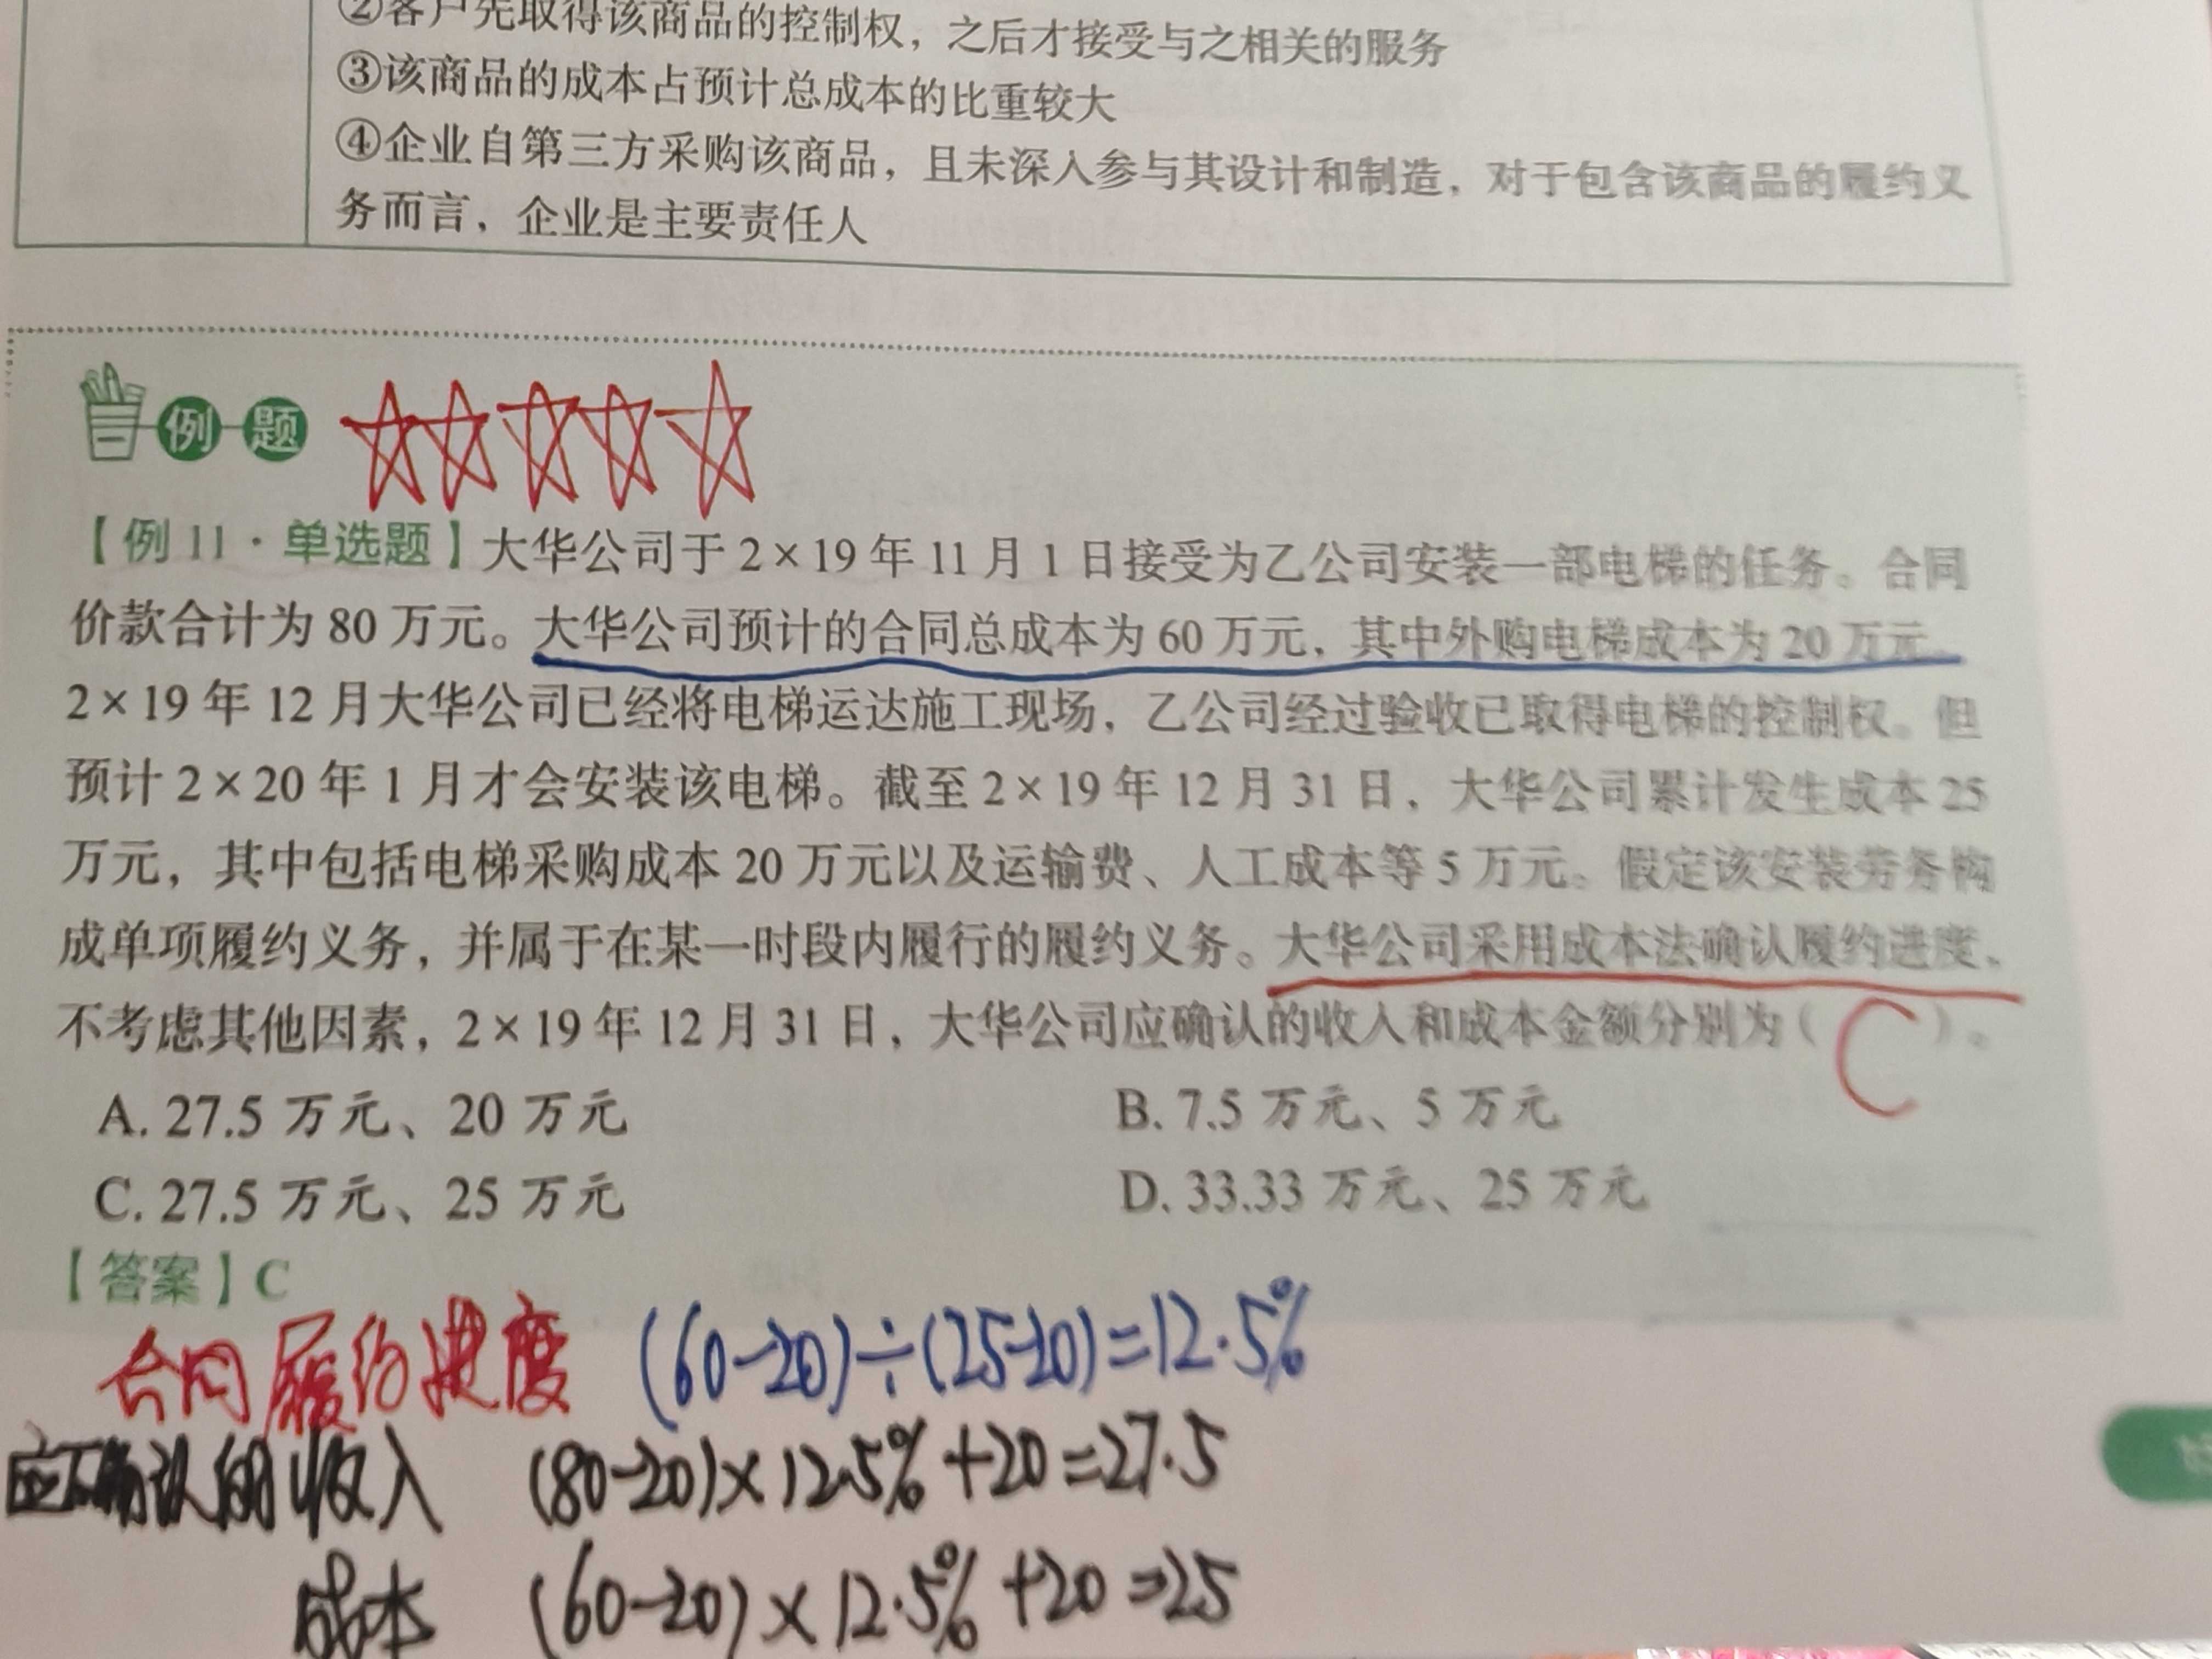 ②客户先取得该商品的控制权，之后才接受与之相关的服务
③该商品的成本占预计总成本的比重较大
④企业自第三方采购该商品，且未深入参与其设计和制造，对于包含该商品的履约义
务而言，企业是主要责任人
例题
【例11·单选题】大华公司于2×19年11月1日接受为乙公司安装一部电梯的任务。合同
价款合计为80万元。大华公司预计的合同总成本为60万元，其中外购电梯成本为20万元。
2×19年12月大华公司已经将电梯运达施工现场，乙公司经过验收已取得电梯的控制权。但
预计2×20年1月才会安装该电梯。截至2×19年12月31日，大华公司累计发生成本25
万元，其中包括电梯采购成本20万元以及运输费、人工成本等5万元。假定该安装劳务构
成单项履约义务，并属于在某一时段内履行的履约义务。大华公司采用成本法确认履约进度，
不考虑其他因素，2×19年12月31日，大华公司应确认的收入和成本金额分别为（ C ）。
A. 27.5万元、20万元 B. 7.5万元、5万元
C. 27.5万元、25万元 D. 33.33万元、25万元
【答案】C
合同履约进度 (60-20)÷(25-20)=12.5%
应确认的收入 (80-20)×12.5%+20=27.5
成本 (60-20)×12.5%+20=25